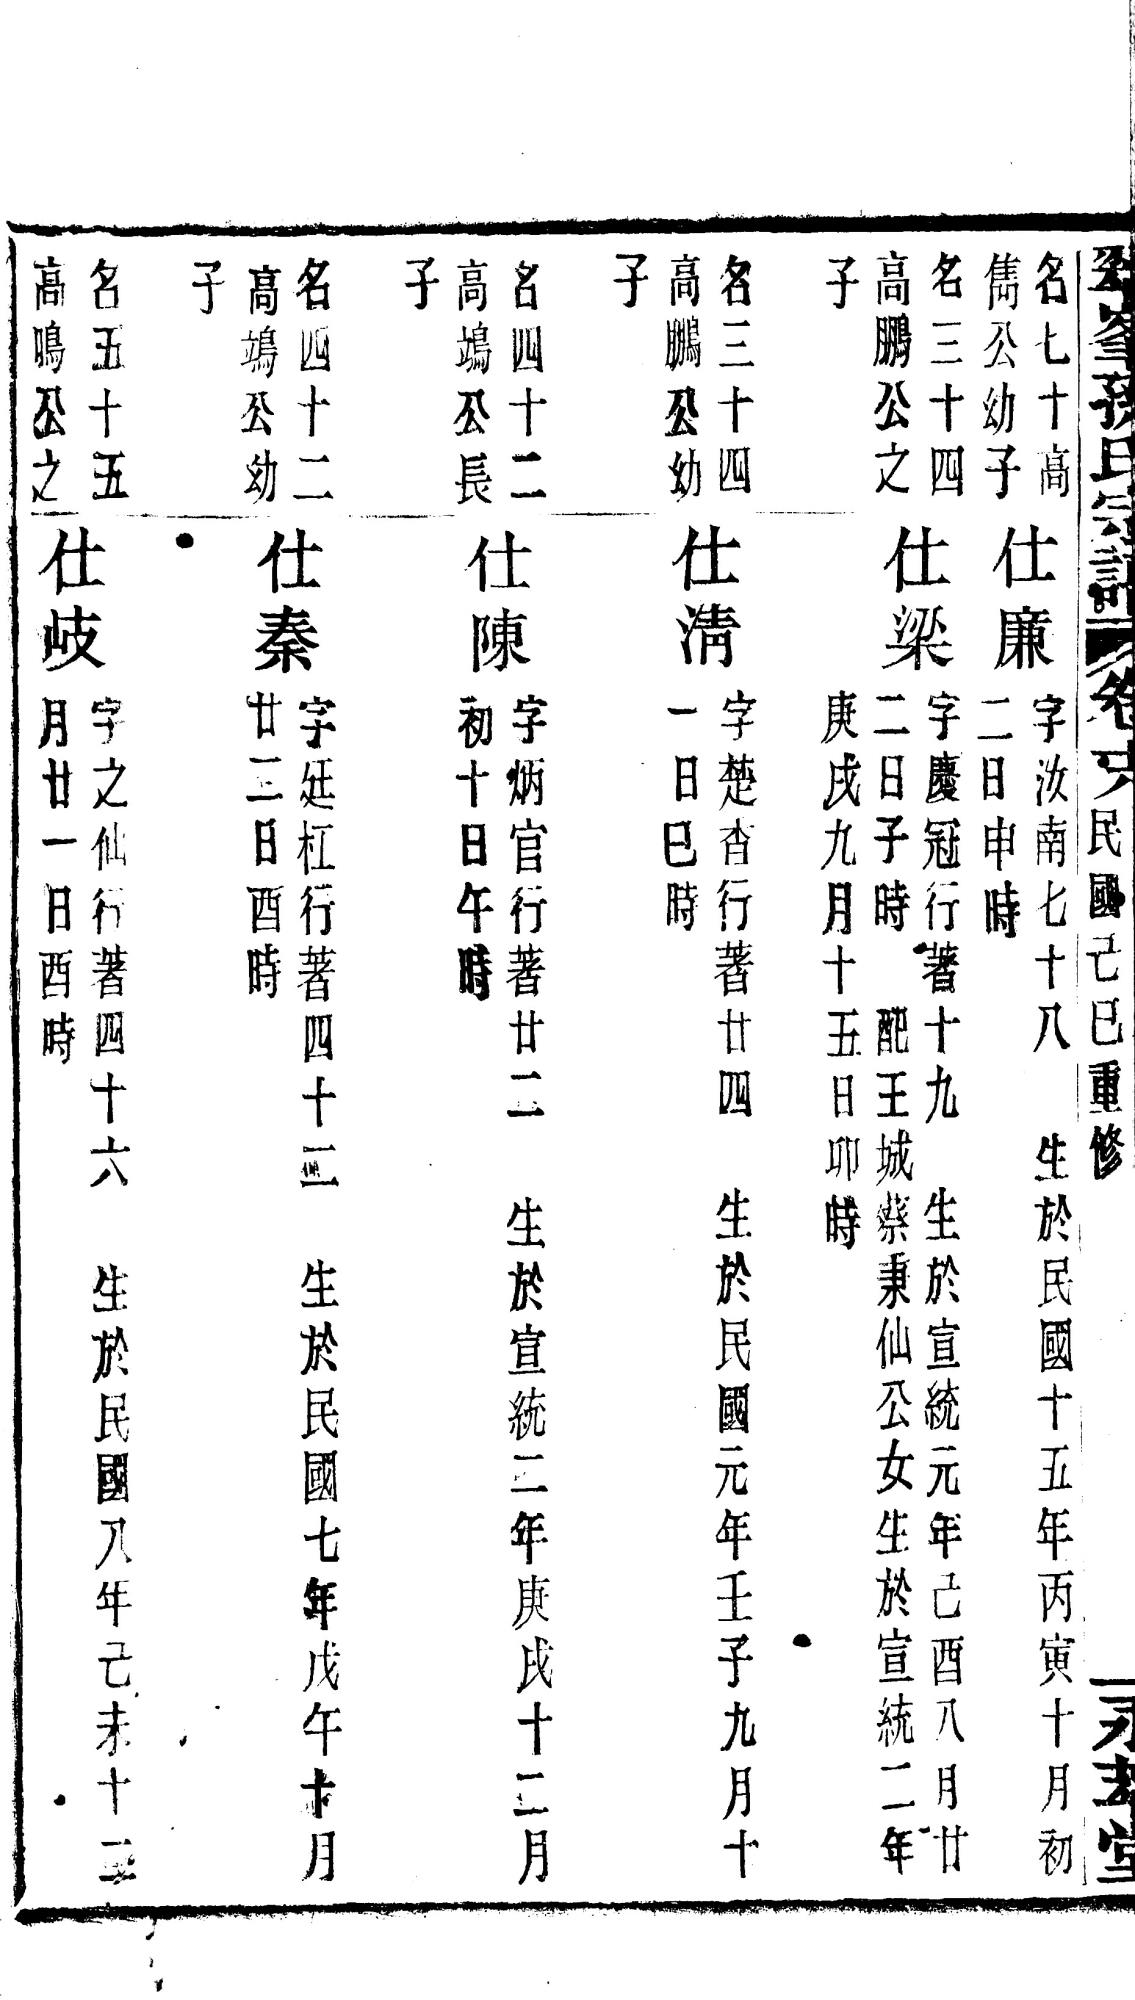 孫氏宗譜 卷六 民國己巳重修 堂
名七十高
雋公幼子
仕廉
字汝南七十八 生於民國十五年丙寅十月初
二日申時
名三十四
高鵬公之
子
仕梁
字慶冠行著十九 生於宣統元年己酉八月廿
二日子時 配王城蔡秉仙公女生於宣統二年
庚戌九月十五日卯時
名三十四
高鵬公幼
子
仕淸
字楚杳行著廿四 生於民國元年壬子九月十
一日巳時
名四十二
高鴻公長
子
仕陳
字炳官行著廿二 生於宣統二年庚戌十二月
初十日午時
名四十二
高鴻公幼
子
仕秦
字廷杠行著四十三 生於民國七年戊午十月
廿三日酉時
名五十五
高鳴公之
仕岐
字之仙行著四十六 生於民國八年己未十二
月廿一日酉時